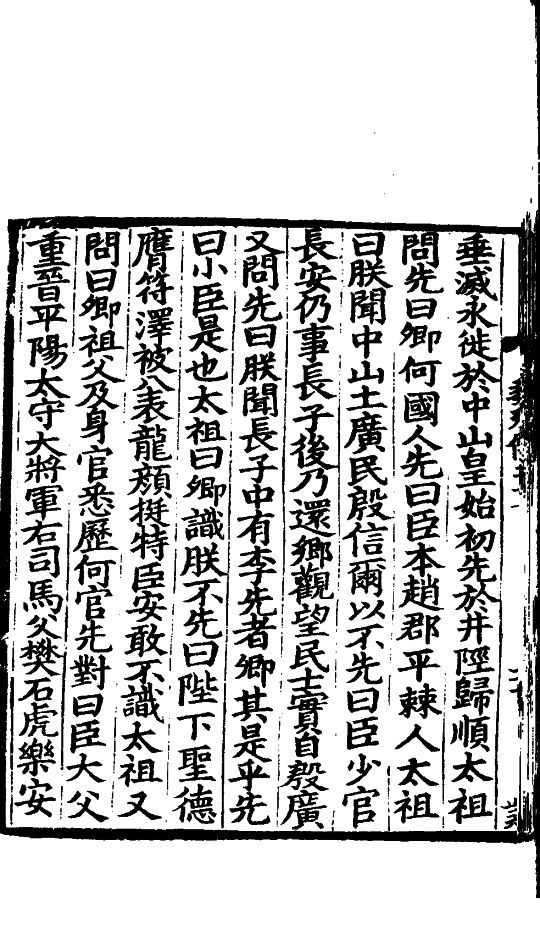 垂滅永徙於中山皇始初先於井陘歸順太祖
問先曰卿何國人先曰臣本趙郡平棘人太祖
曰朕聞中山土廣民殷信爾以不先曰臣少官
長安仍事長子後乃還鄉觀望民士實自殷廣
又問先曰朕聞長子中有李先者卿其是乎先
曰小臣是也太祖曰卿識朕不先曰陛下聖德
膺符澤被八表龍顏挺特臣安敢不識太祖又
問曰卿祖父及身官悉歷何官先對曰臣大父
重晉平陽太守大將軍右司馬父樊石虎樂安